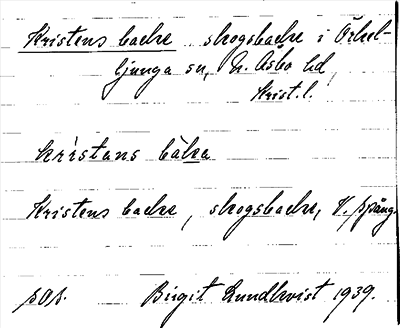 Kristens backe skogsbacke i Örkel-
ljunga sn, N. Åsbo hd,
Krist. l.
kristans båka
Kristens backe, skogsbacke, V. Spång.
sos. Birgit Lundkvist 1939.